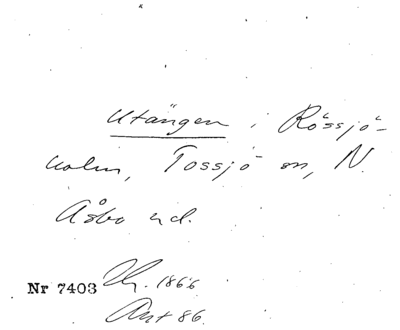 Utängen i Rössjö-
holm, Tossjö sn, N.
Åsbo hd.
Nr 7403 1866
Ant 86.